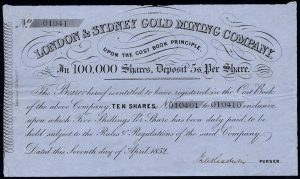 No 01041
LONDON & SYDNEY GOLD MINING COMPANY,
UPON THE COST BOOK PRINCIPLE.
In 100,000 Shares, Deposit 5s Per Share.
The Bearer hereof is entitled to have registered in the Cost Book
of the above Company, TEN SHARES, No 010401 to 010410 inclusive
upon which Five Shillings Per Share has been duly paid, to be
held subject to the Rules & Regulations of the said Company.
Dated this Seventh day of April 1852.
PURSER.